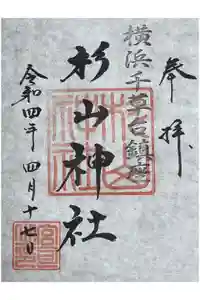 奉拝
横浜千草台鎮座
杉山神社
令和四年四月十七日